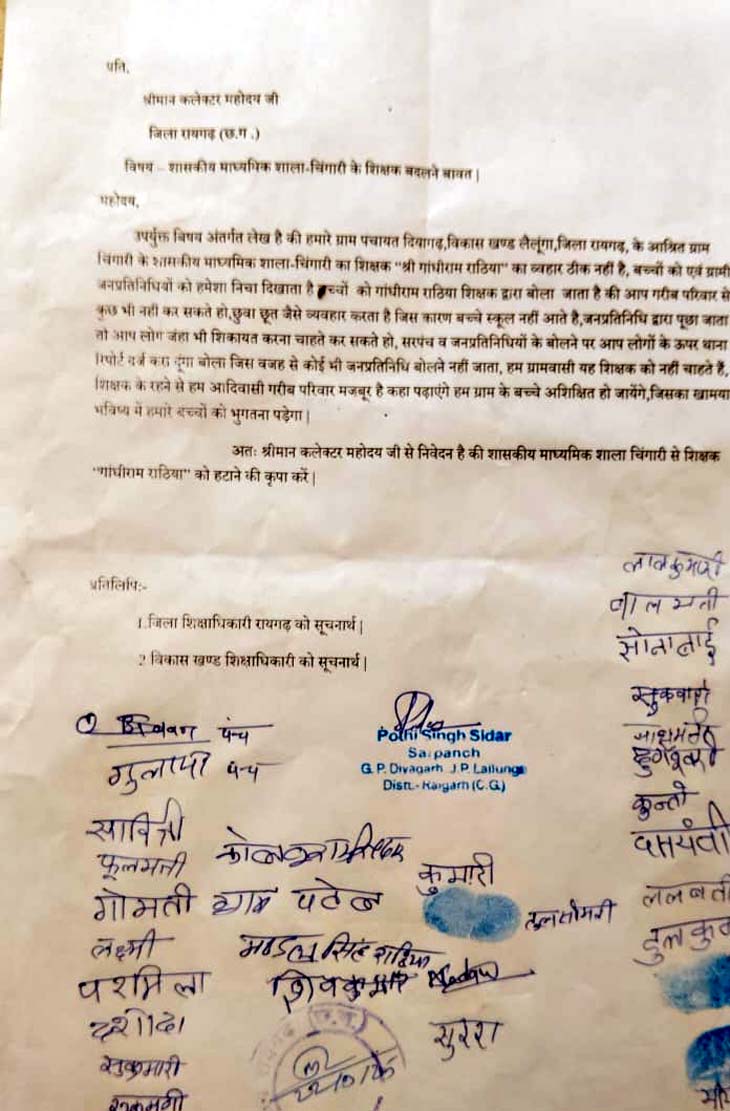 प्रति,
श्रीमान कलेक्टर महोदय जी
जिला रायगढ़ (छ.ग .)
विषय – शासकीय माध्यमिक शाला-चिंगारी के शिक्षक बदलने बावत |
महोदय,
उपर्युक्त विषय अंतर्गत लेख है की हमारे ग्राम पंचायत दियागढ़,विकास खण्ड लैलूंगा,जिला रायगढ़, के आश्रित ग्राम
चिंगारी के शासकीय माध्यमिक शाला-चिंगारी का शिक्षक "श्री गांधीराम राठिया" का व्यहार ठीक नहीं है, बच्चों को एवं ग्रामी
जनप्रतिनिधियों को हमेशा निचा दिखाता है बच्चों को गांधीराम राठिया शिक्षक द्वारा बोला जाता है की आप गरीब परिवार से
कुछ भी नहीं कर सकते हो,छुवा छूत जैसे व्यवहार करता है जिस कारण बच्चे स्कूल नहीं आते है,जनप्रतिनिधि द्वारा पूछा जाता
तो आप लोग जंहा भी शिकायत करना चाहते कर सकते हो, सरपंच व जनप्रतिनिधियों के बोलने पर आप लोगों के ऊपर थाना
रिपोर्ट दर्ज करा दूंगा बोला जिस वजह से कोई भी जनप्रतिनिधि बोलने नहीं जाता, हम ग्रामवासी यह शिक्षक को नहीं चाहते हैं,
शिक्षक के रहने से हम आदिवासी गरीब परिवार मजबूर है कहा पढ़ाएंगे हम ग्राम के बच्चे अशिक्षित हो जायेंगे,जिसका खामया
भविष्य में हमारे बच्चों को भुगतना पड़ेगा |
अतः श्रीमान कलेक्टर महोदय जी से निवेदन है की शासकीय माध्यमिक शाला चिंगारी से शिक्षक
"गांधीराम राठिया" को हटाने की कृपा करें |
प्रतिलिपि:-
1.जिला शिक्षाधिकारी रायगढ़ को सूचनार्थ |
2.विकास खण्ड शिक्षाधिकारी को सूचनार्थ |
लालकुमारी
बालमती
सोनालाई
सुकवारो
कुन्तो
दमयंती
ललबती
पंच
Pothi Singh Sidar
Sarpanch
G. P. Divagarh J.P. Lailunga
Distt.- Raigarh (C.G.)
गुलापी पंच
सावित्री
फूलमती
कुमारी
गोमती
पटेल
तुलसीमती
लक्ष्मी
सिंह राठिया
परमिला
शिवकुमार
सुकुमारी